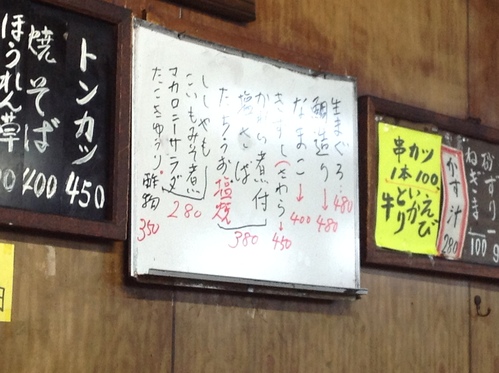 トンカツ 450
焼そば 400
ほうれん草
生まぐろ…480
鯛造り→480
なまこ→400
きずし(さわら)→450
かれい煮付
塩さば
たちうお塩焼
380
ししゃも
こいもみそ煮
マカロニーサラダ
280
たこきゅうり酢物 350
串カツ
1本100
えび
いか
とり
牛
かす汁 280
円